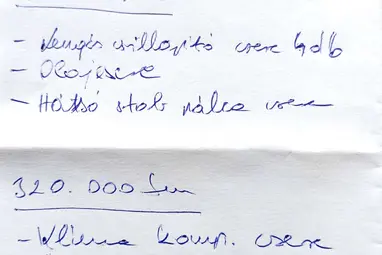 - Lengés csillapitó csere 4db
- Olajcsere
- Hátsó stab pálca csere
320.000 km
- Klima komp. csere